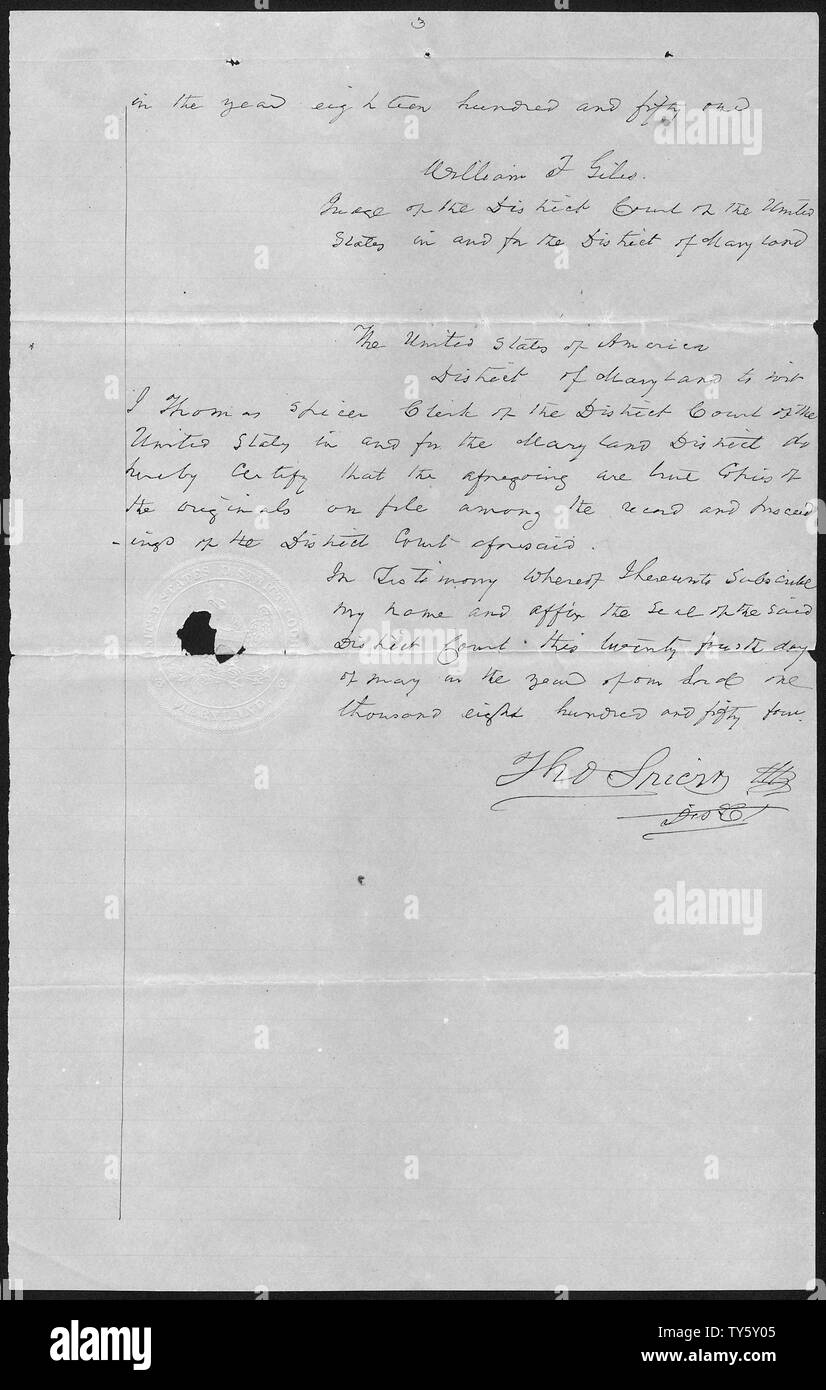 3
in the year eighteen hundred and fifty one
William F Giles.
Judge of the District Court of the United
States in and for the District of Maryland
The United States of America
District of Maryland to wit
I Thomas Spicer Clerk of the District Court of the
United States in and for the Maryland District do
hereby Certify that the aforegoing are true Copies of
the originals on file among the record and proceed
-ings of the District Court aforesaid.
In Testimony Whereof I hereunto Subscribe
my name and affix the Seal of the said
District Court this twenty fourth day
of May in the year of our Lord one
thousand eight hundred and fifty four.
Tho Spicer Clk
Dis Ct
alamy
Image ID: TY5Y05
www.alamy.com